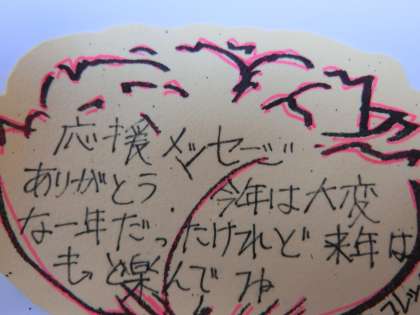 応援メッセージ
ありがとう 今年は大変
な一年だったけれど来年は
もっと楽んでね